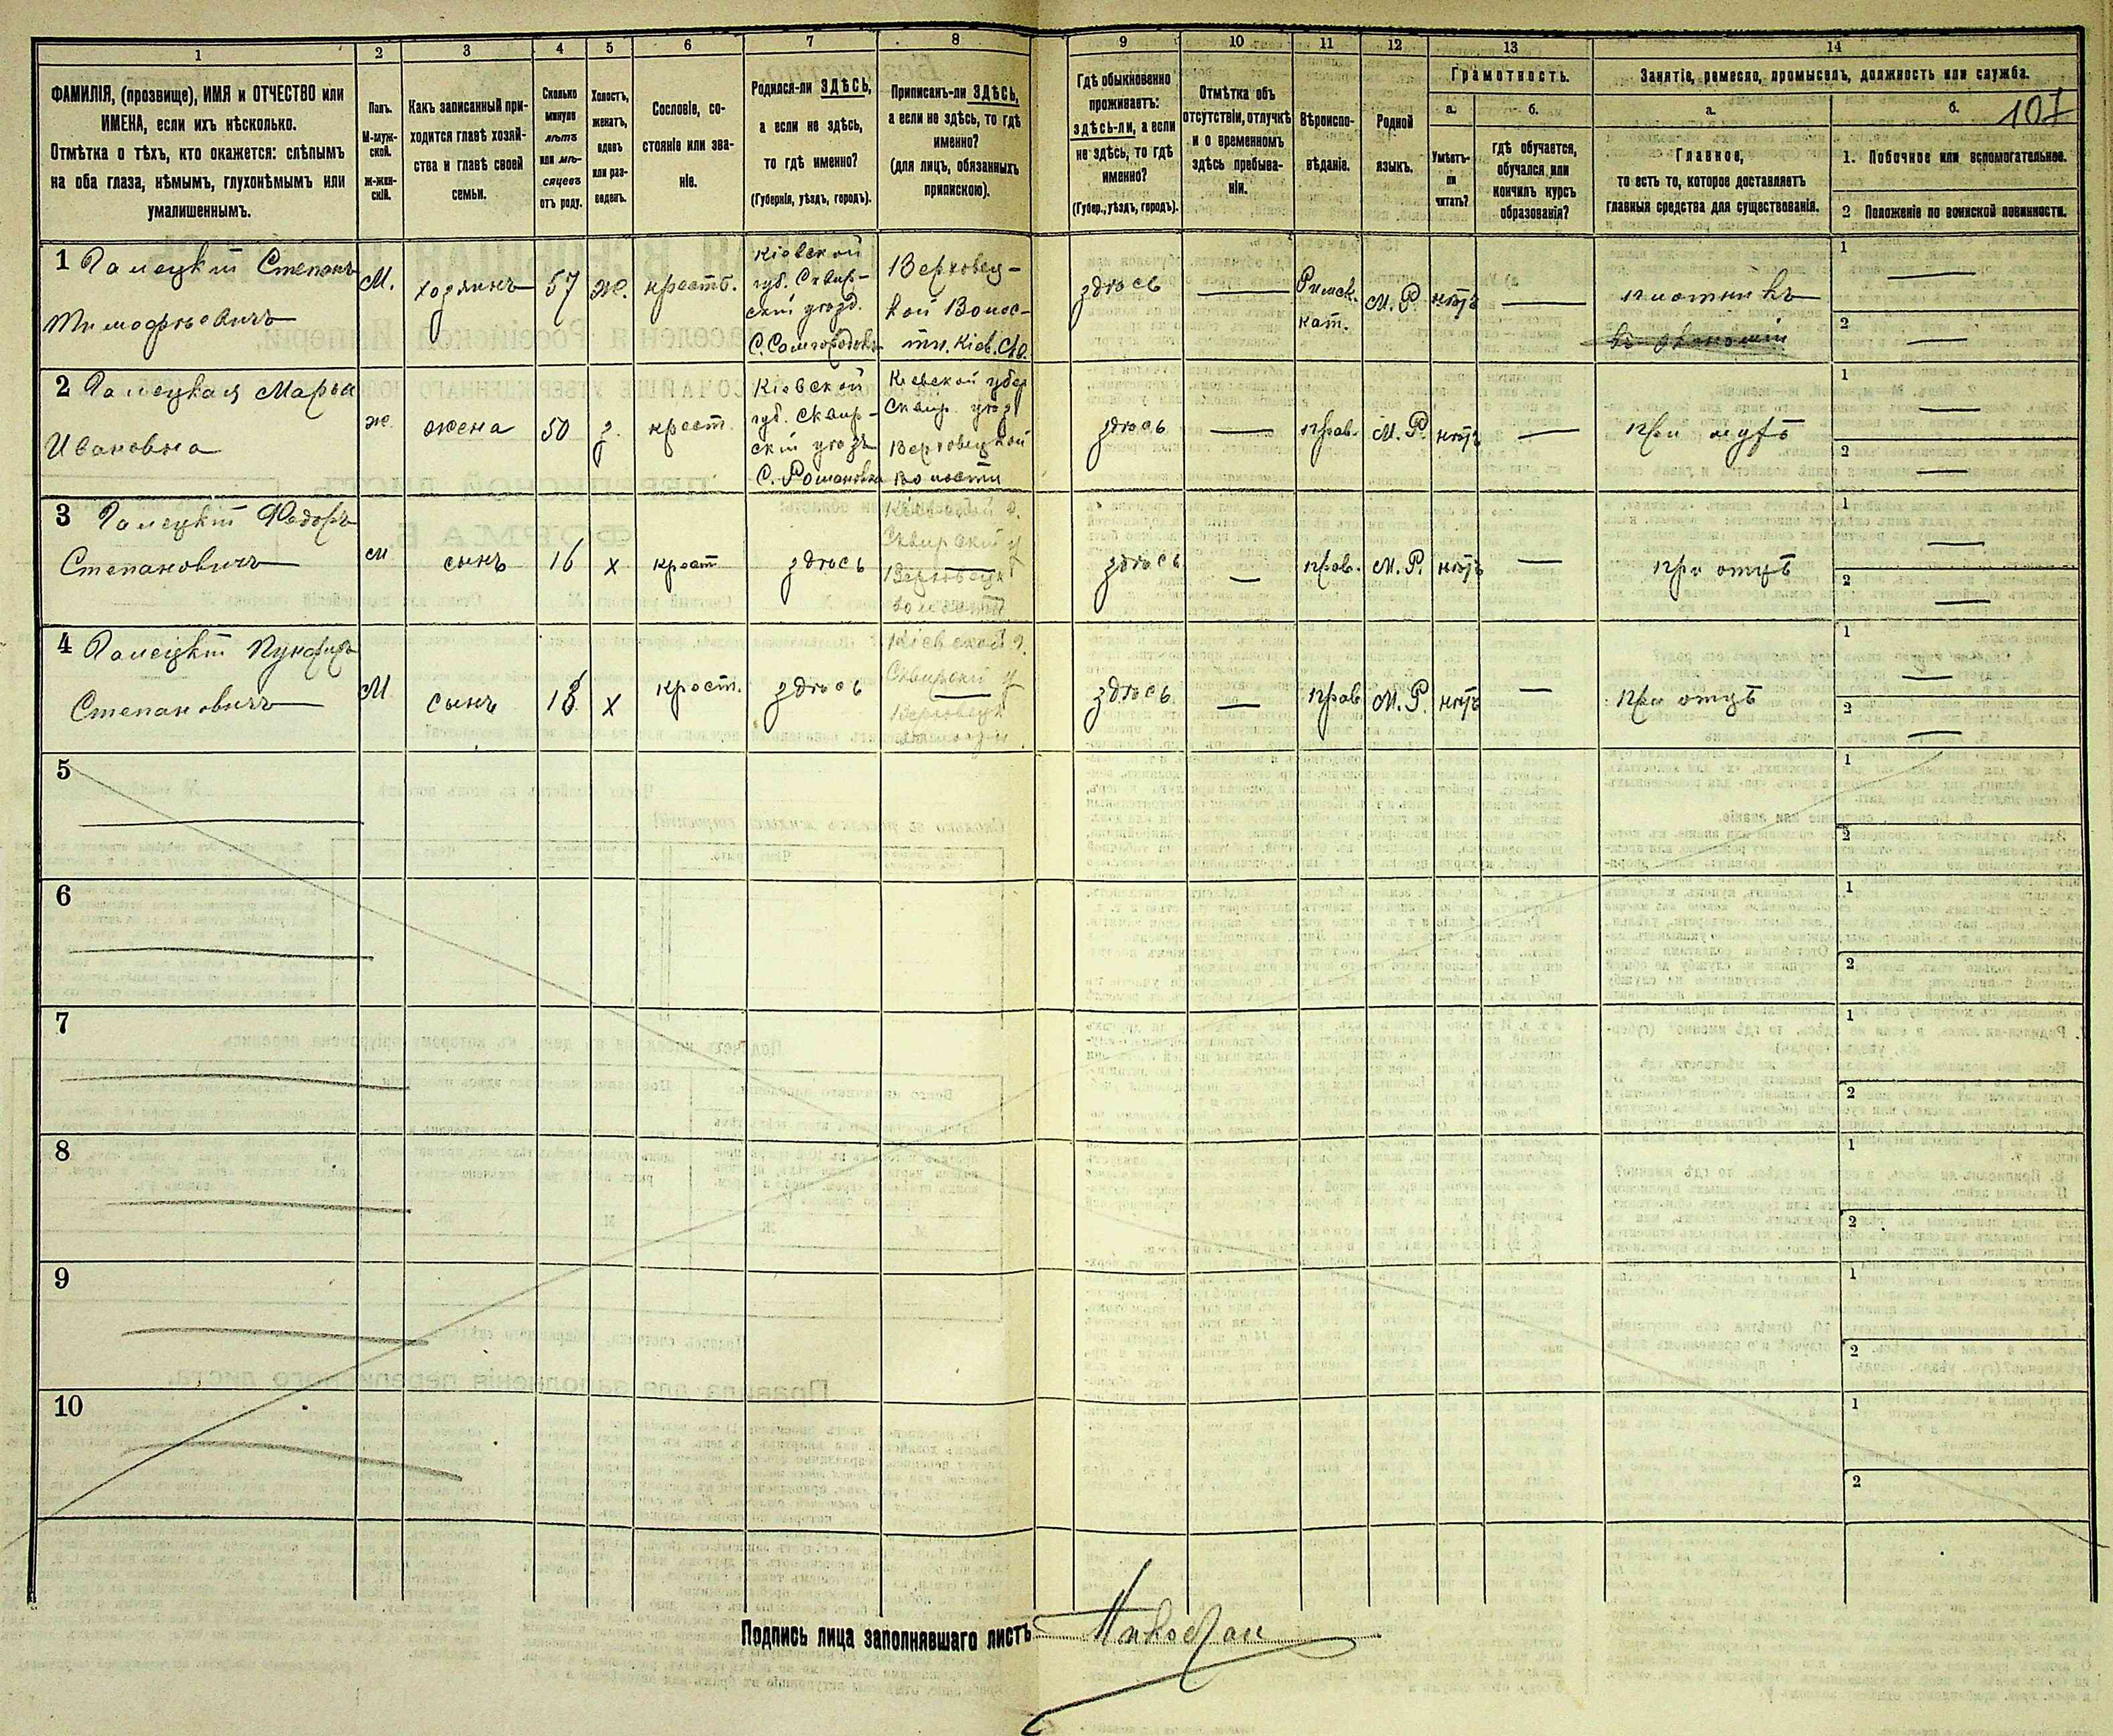 1 2 3 4 5 6 7 8 9 10 11 12 13 14
107
ФАМИЛІЯ, (прозвище), ИМЯ и ОТЧЕСТВО или
ИМЕНА, если ихъ нѣсколько.
Отмѣтка о тѣхъ, кто окажется: слѣпымъ
на оба глаза, нѣмымъ, глухонѣмымъ или
умалишеннымъ.
Полъ.
М-муж-
ской.
Ж-жен-
скій.
Какъ записанный при-
ходится главѣ хозяй-
ства и главѣ своей
семьи.
Сколько
минуло
лѣтъ
или мѣ-
сяцевъ
отъ роду.
Холостъ,
женатъ,
вдовъ
или раз-
веденъ.
Сословіе, со-
стояніе или зва-
ніе.
Родился-ли ЗДѢСЬ,
а если не здѣсь,
то гдѣ именно?
(Губернія, уѣздъ, городъ).
Приписанъ-ли ЗДѢСЬ,
а если не здѣсь, то гдѣ
именно?
(для лицъ, обязанныхъ
припискою).
Гдѣ обыкновенно
проживаетъ:
здѣсь-ли, а если
не здѣсь, то гдѣ
именно?
(Губер., уѣздъ, городъ).
Отмѣтка объ
отсутствіи, отлучкѣ
и о временномъ
здѣсь пребыва-
ніи.
Вѣроиспо-
вѣданіе.
Родной
языкъ.
Грамотность.
а.
Умѣетъ-
ли
читать?
б.
гдѣ обучается,
обучался или
кончилъ курсъ
образованія?
Занятіе, ремесло, промыселъ, должность или служба.
а.
Главное,
то есть то, которое доставляетъ
главныя средства для существованія.
б.
1. Побочное или вспомогательное.
2 Положеніе по воинской повинности.
1 Степанъ
Тимофѣевичъ
М.
хозяинъ
57
ж.
крестб.
Кіевской
губ. Сквир-
скій уѣзд.
Верховец-
кой Волос-
ти. Кіев.
здѣсь
Римск.
кат.
М. Р.
нѣтъ
плотникъ
въ экономіи
1
2
2 Марья
Ивановна
ж
жена
50
з.
крест.
Кіевской
губ. Сквир-
скій уѣздъ
С. Романовка
Кіевской губер
Сквир. уѣзд
Верховецкой
Волости
здѣсь
прав.
М. Р.
нѣтъ
при мужѣ
1
2
3 Федоръ
Степановичъ
м
сынъ
16
х
крест
здѣсь
Кіевской г.
Сквирскій у
Верховецк
волости
здѣсь
прав.
М. Р.
нѣтъ
при отцѣ
1
2
4
Степановичъ
М
сынъ
13
х
крест.
здѣсь
Кіевской г.
Сквирскій у
Верховецк
здѣсь
прав
М. Р.
нѣтъ
при отцѣ
1
2
5
1
2
6
1
2
7
1
2
8
1
2
9
1
2
10
1
2
Подпись лица заполнявшаго листъ